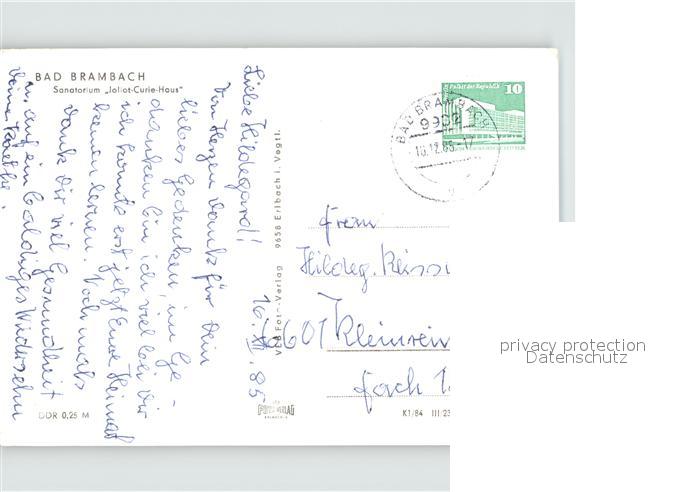 BAD BRAMBACH
Sanatorium „Joliot-Curie-Haus"
Liebe Hildegard!
Von Herzen Dank für Dein
liebes Gedenken, im Ge-
danken bin ich viel bei Dir
ich konnte erst jetzt Eure Heimat
kennen lernen. Nochmals
Dank Dir viel Gesundheit
u. auf ein baldiges Wiedersehn
Deine
16. XII. 85
DDR 0,25 M
VEB Foto-Verlag 9658 Erlbach i. Vogtl.
Palast der Republik 10
BAD BRAMBACH
9932
16.12.85-17
Frau
Hildeg.
6601 Kleinrein
K1/84 III/23
privacy protection
Datenschutz